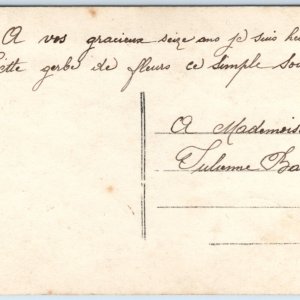 A vos gracieux seize ans je suis heu
cette gerbe de fleurs ce simple sou
A Mademois
Julienne Ba